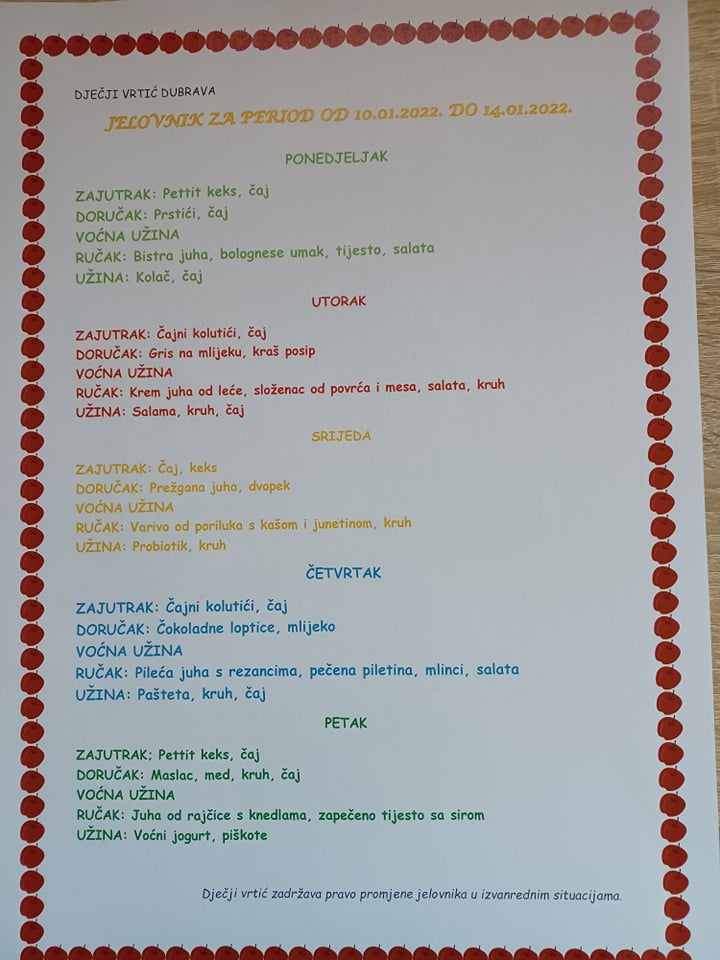 DJEČJI VRTIĆ DUBRAVA
JELOVNIK ZA PERIOD OD 10.01.2022. DO 14.01.2022.
PONEDJELJAK
ZAJUTRAK: Pettit keks, čaj
DORUČAK: Prstići, čaj
VOĆNA UŽINA
RUČAK: Bistra juha, bolognese umak, tijesto, salata
UŽINA: Kolač, čaj
UTORAK
ZAJUTRAK: Čajni kolutići, čaj
DORUČAK: Gris na mlijeku, kraš posip
VOĆNA UŽINA
RUČAK: Krem juha od leće, složenac od povrća i mesa, salata, kruh
UŽINA: Salama, kruh, čaj
SRIJEDA
ZAJUTRAK: Čaj, keks
DORUČAK: Prežgana juha, dvopek
VOĆNA UŽINA
RUČAK: Varivo od poriluka s kašom i junetinom, kruh
UŽINA: Probiotik, kruh
ČETVRTAK
ZAJUTRAK: Čajni kolutići, čaj
DORUČAK: Čokoladne loptice, mlijeko
VOĆNA UŽINA
RUČAK: Pileća juha s rezancima, pečena piletina, mlinci, salata
UŽINA: Pašteta, kruh, čaj
PETAK
ZAJUTRAK; Pettit keks, čaj
DORUČAK: Maslac, med, kruh, čaj
VOĆNA UŽINA
RUČAK: Juha od rajčice s knedlama, zapečeno tijesto sa sirom
UŽINA: Voćni jogurt, piškote
Dječji vrtić zadržava pravo promjene jelovnika u izvanrednim situacijama.